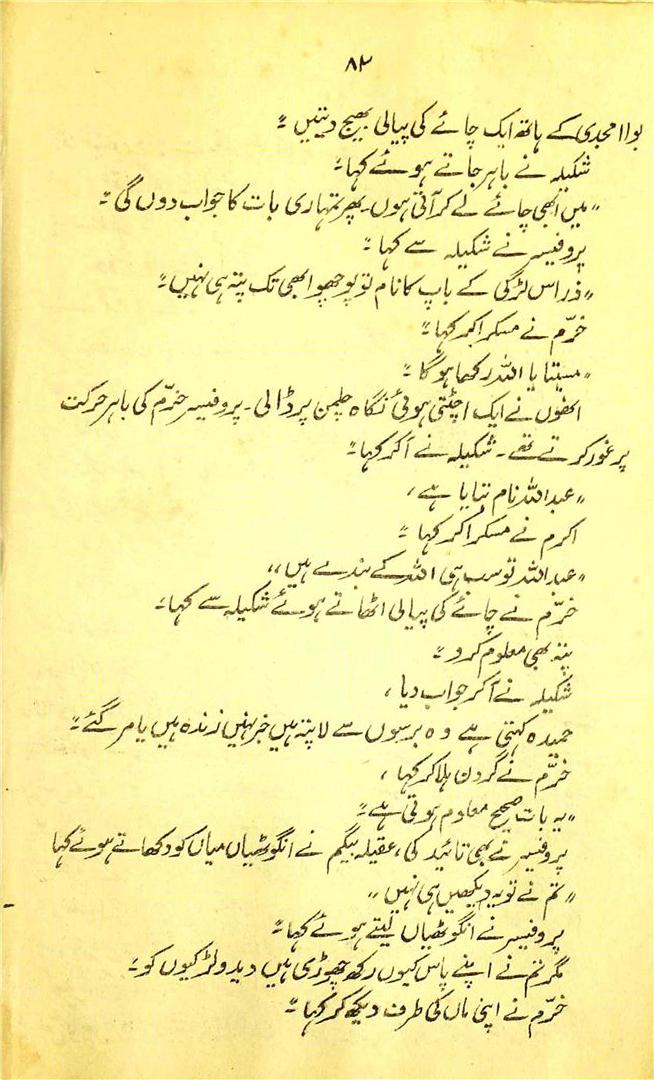 ۸۲
بوا امجدی کے ہاتھ ایک چائے کی پیالی بھیج دیتیں۔"
شکیلہ نے باہر جاتے ہوئے کہا۔
"میں ابھی چائے لے کر آتی ہوں۔ پھر تمہاری بات کا جواب دوں گی۔"
پروفیسر نے شکیلہ سے کہا۔
"ذرا اس لڑکی کے باپ کا نام تو پوچھو ابھی تک پتہ ہی نہیں۔"
خرّم نے مسکرا کر کہا۔"
"سیتا یا اللہ رکھا ہوگا۔"
انھوں نے ایک اچٹتی ہوئی نگاہ چلمن پر ڈالی۔ پروفیسر خرّم کی ہر حرکت
پر غور کرتے تھے۔ شکیلہ نے آکر کہا۔"
"عبداللہ نام بتایا ہے،
اکرم نے مسکرا کر کہا۔"
"عبداللہ تو سب ہی اللہ کے بندے ہیں،،
خرّم نے چائے کی پیالی اٹھاتے ہوئے شکیلہ سے کہا۔
پتہ بھی معلوم کرو۔"
شکیلہ نے آکر جواب دیا،
حمیدہ کہتی ہے وہ برسوں سے لاپتہ ہیں خبر نہیں زندہ ہیں یا مر گئے۔"
خرّم نے گردن ہلا کر کہا،
"یہ بات صحیح معلوم ہوتی ہے۔"
پروفیسر نے بھی تائید کی، عقیلہ بیگم نے انگوٹھیاں میاں کو دکھاتے ہوئے کہا
"تم نے تو یہ دیکھیں ہی نہیں،،
پروفیسر نے انگوٹھیاں لیتے ہوئے کہا۔"
مگر تم نے اپنے پاس کیوں رکھ چھوڑی ہیں دیدو لڑکیوں کو۔
خرّم نے اپنی ماں کی طرف دیکھ کر کہا۔"